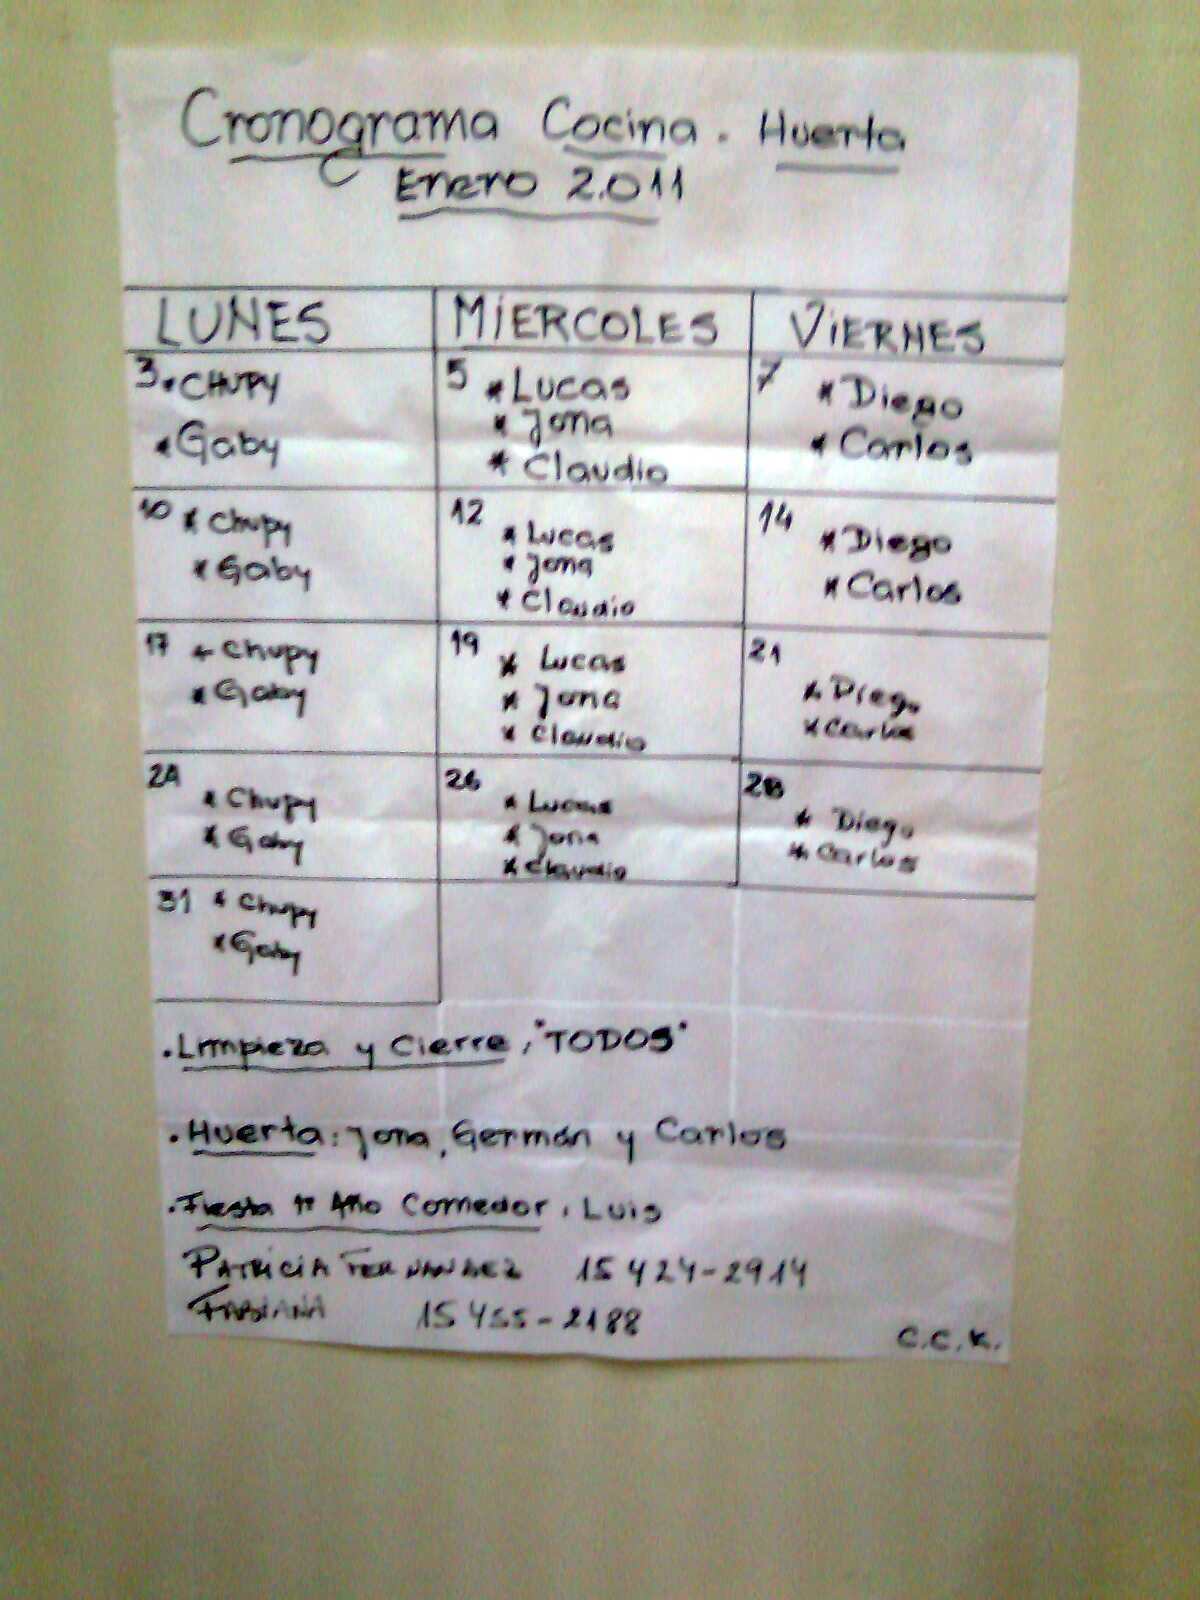 Cronograma Cocina. Huerta
Enero 2.011
LUNES MIERCOLES VIERNES
3 * CHUPY
* Gaby
5 * Lucas
* Jona
* Claudio
7 * Diego
* Carlos
10 * Chupy
* Gaby
12 * Lucas
* Jona
* Claudio
14 * Diego
* Carlos
17 * Chupy
* Gaby
19 * Lucas
* Jona
* Claudio
21 * Diego
* Carlos
24 * Chupy
* Gaby
26 * Lucas
* Jona
* Claudio
28 * Diego
* Carlos
31 * Chupy
* Gaby
. Limpieza y Cierre, "TODOS"
. Huerta: Jona, Germán y Carlos
. Fiesta 1º Año Comedor. Luis
PATRICIA FERNANDEZ 15 424-2914
FABIANA 15 455-2188
C.C.K.